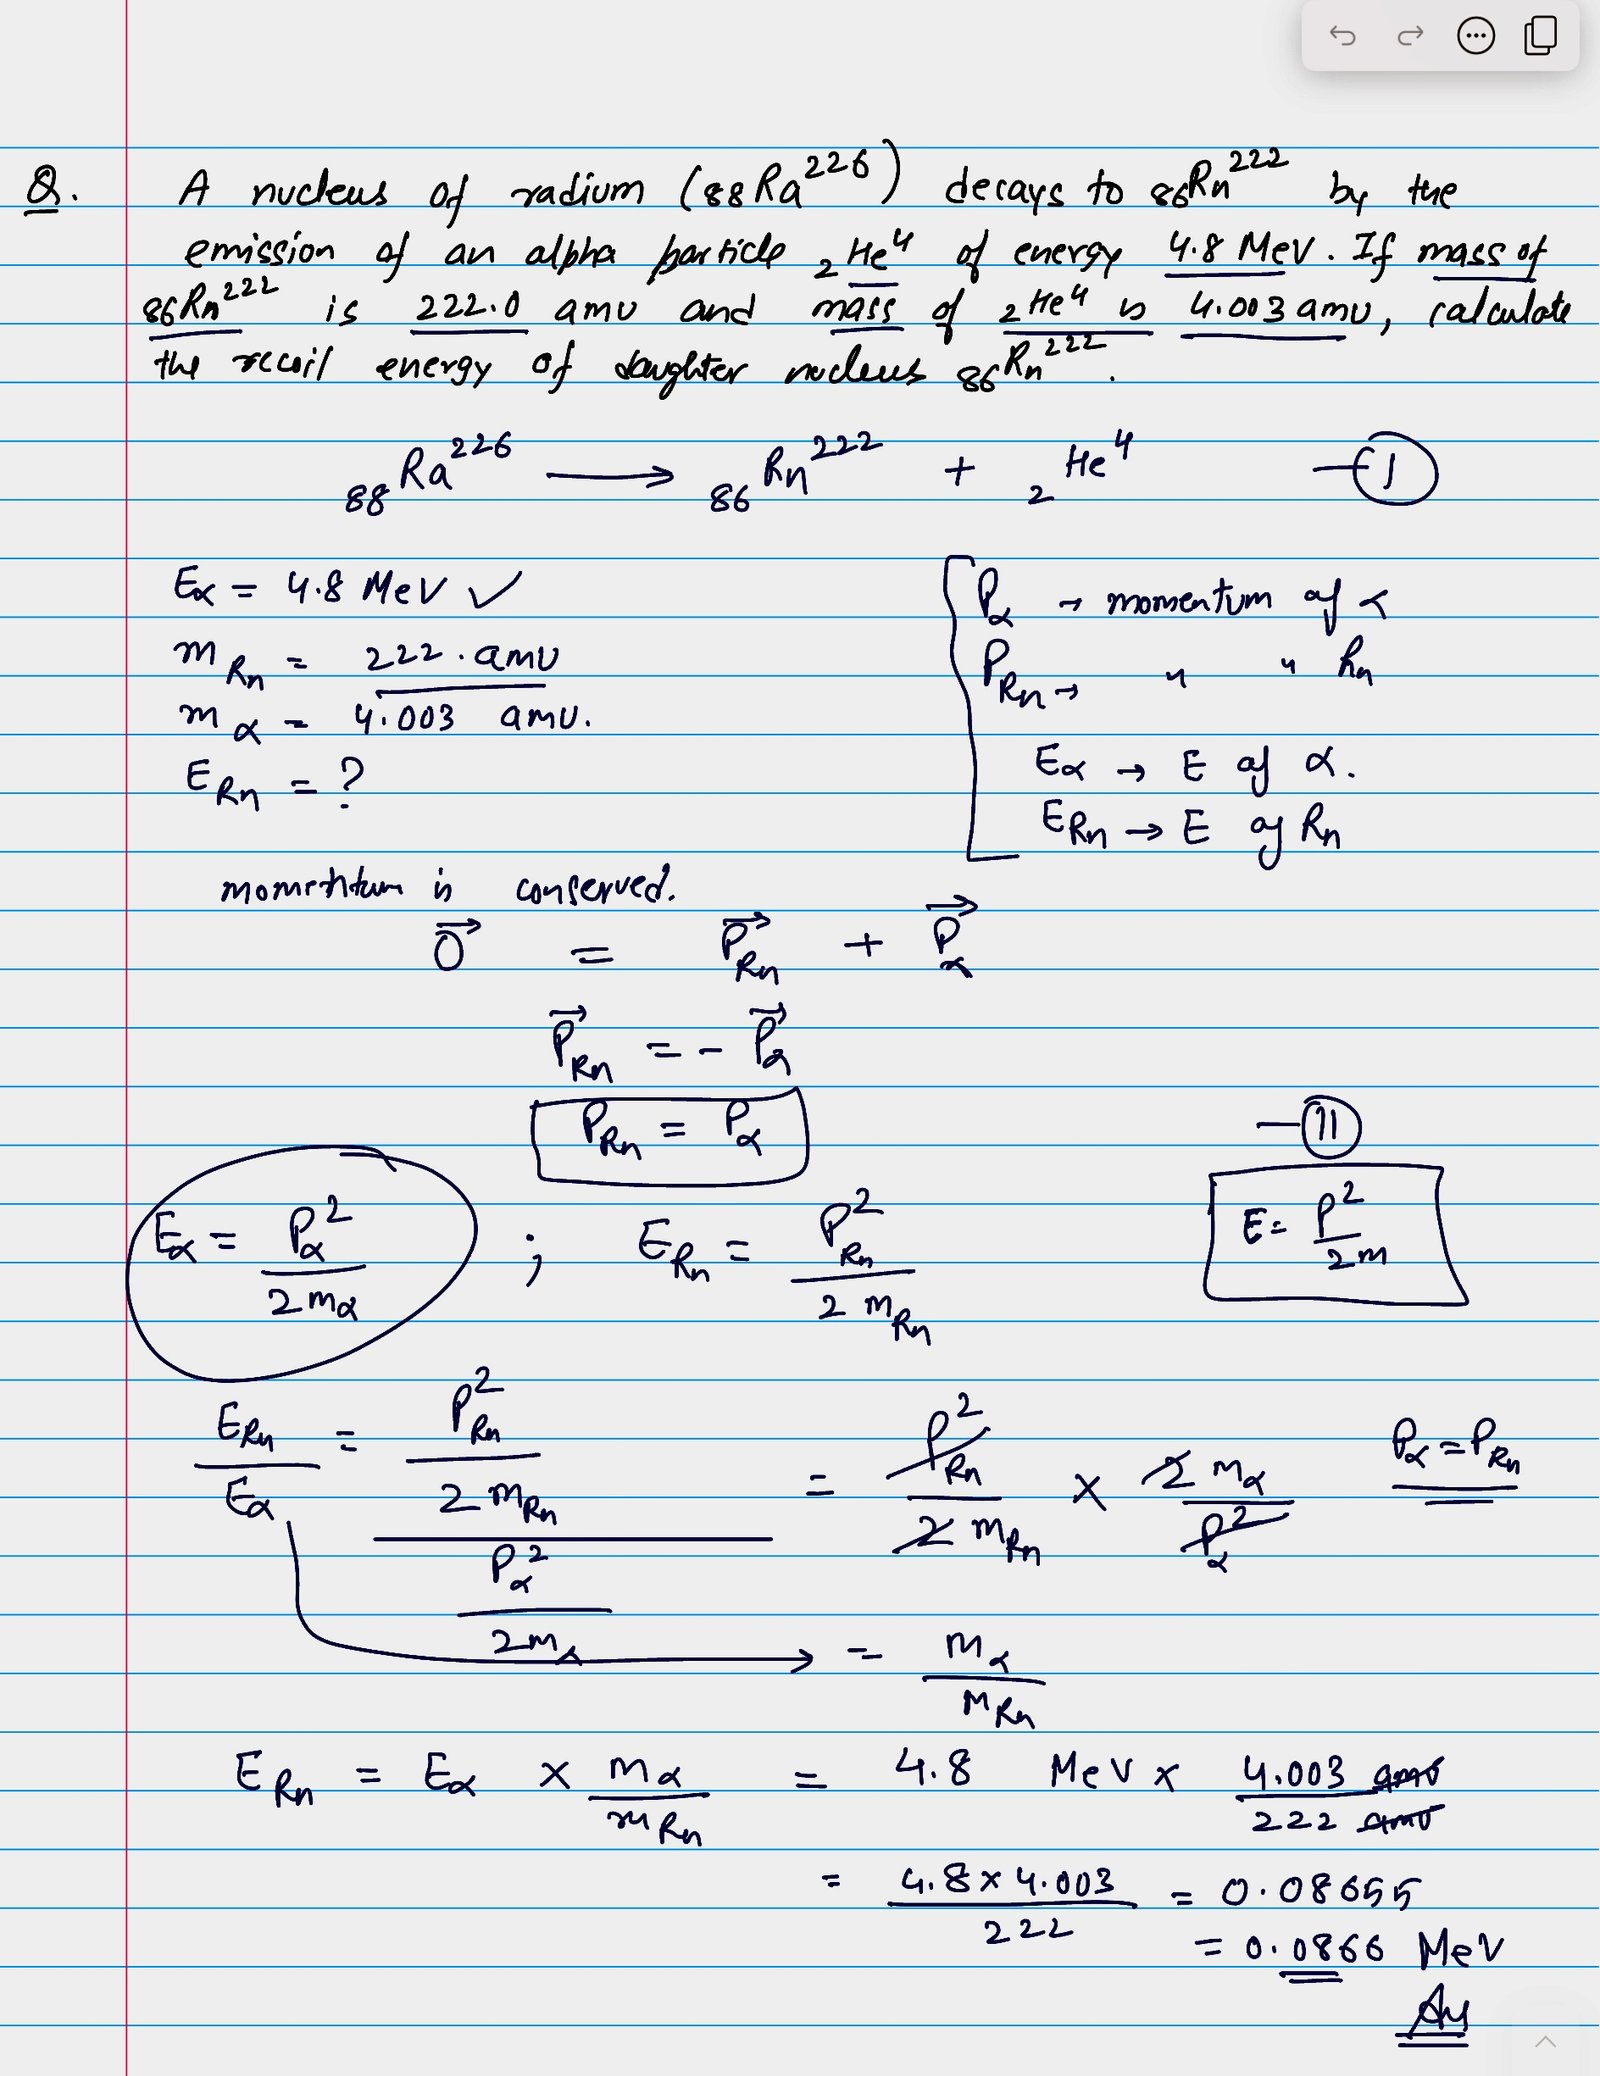 Q. A nucleus of radium (₈₈Ra²²⁶) decays to ₈₆Rn²²² by the
emission of an alpha particle ₂He⁴ of energy 4.8 MeV. If mass of
₈₆Rn²²² is 222.0 amu and mass of ₂He⁴ is 4.003 amu, calculate
the recoil energy of daughter nucleus ₈₆Rn²²².
₈₈Ra²²⁶ ⟶ ₈₆Rn²²² + ₂He⁴ —(I)
Eα = 4.8 MeV ✓
m_Rn = 222. amu
mα = 4.003 amu.
E_Rn = ?
Pα → momentum of α
P_Rn → " " Rn
Eα → E of α.
E_Rn → E of Rn
momentum is conserved.
0⃗ = P⃗_Rn + P⃗α
P⃗_Rn = - P⃗α
P_Rn = Pα —(II)
Eα = Pα²/2mα ; E_Rn = P_Rn²/2m_Rn E = P²/2m
E_Rn/Eα = (P_Rn²/2m_Rn)/(Pα²/2mα) = P_Rn²/2m_Rn × 2mα/Pα² Pα = P_Rn
= mα/m_Rn
E_Rn = Eα × mα/m_Rn = 4.8 MeV × 4.003 amu/222 amu
= 4.8 × 4.003/222 = 0.08655
= 0.0866 MeV
Ans